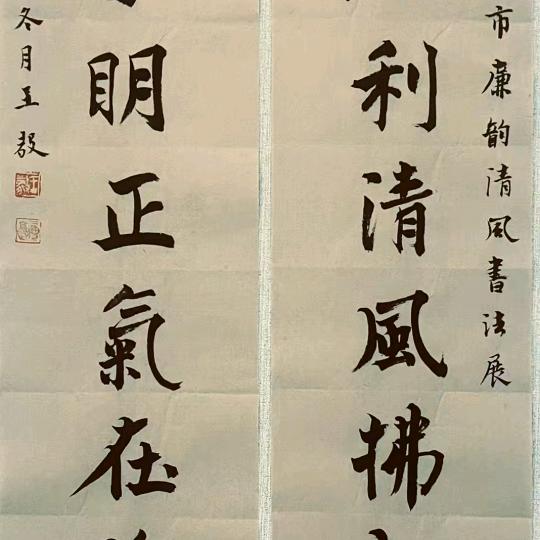 市廉韵清风書法展
利清風拂
明正氣在
冬月王毅